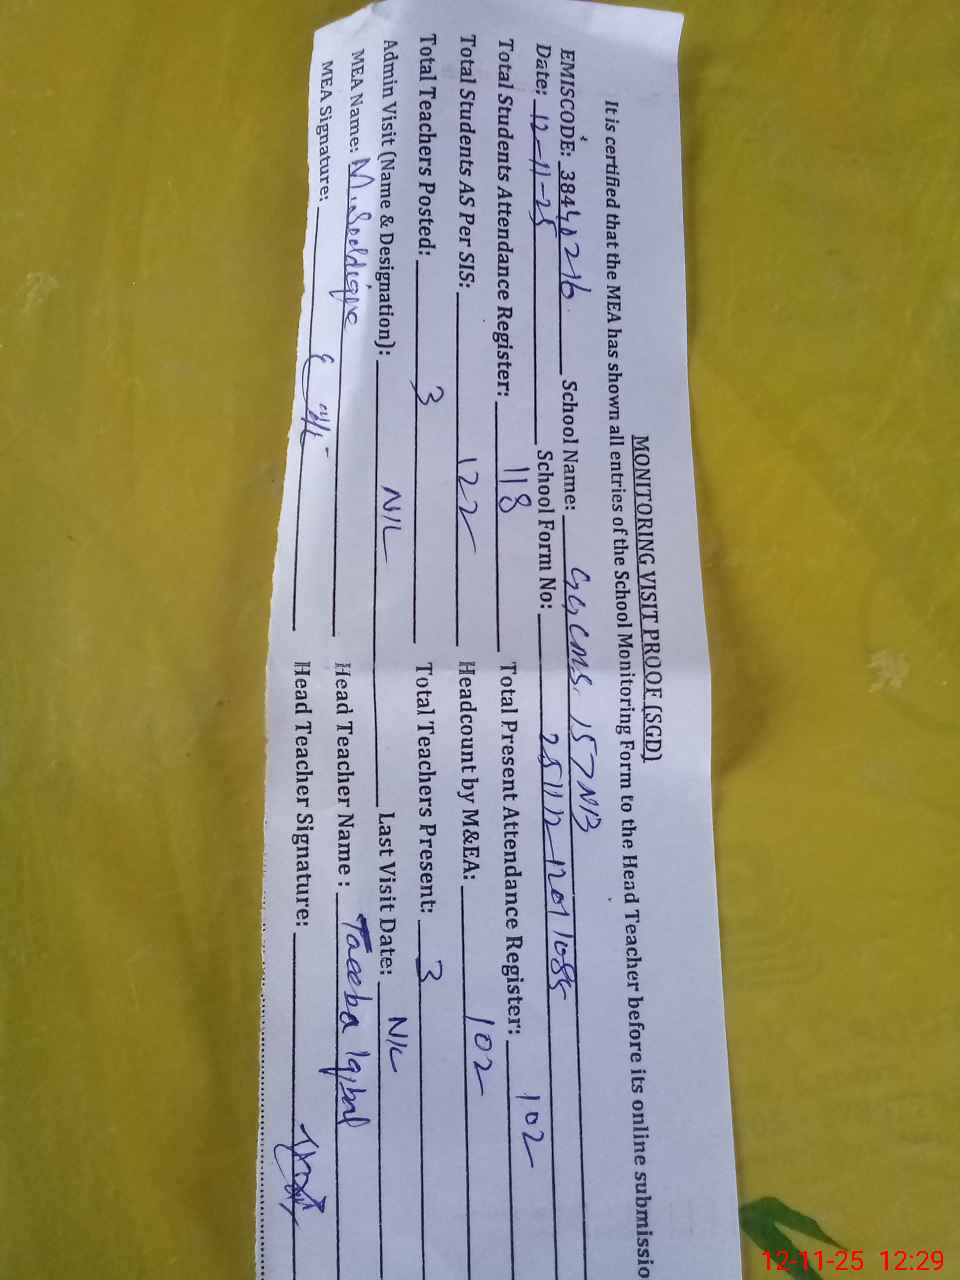 MONITORING VISIT PROOF (SGD)
It is certified that the MEA has shown all entries of the School Monitoring Form to the Head Teacher before its online submissio
EMISCODE: 38440216 School Name: GGCMS. 157NB
Date: 12-11-25 School Form No:
Total Students Attendance Register: 118 Total Present Attendance Register: 102
Total Students AS Per SIS: 122 Headcount by M&EA: 102
Total Teachers Posted: 3 Total Teachers Present: 3
Admin Visit (Name & Designation): NIL Last Visit Date: NIL
MEA Name: Head Teacher Name : Taeeba Iqbal
MEA Signature: Head Teacher Signature:
12-11-25 12:29